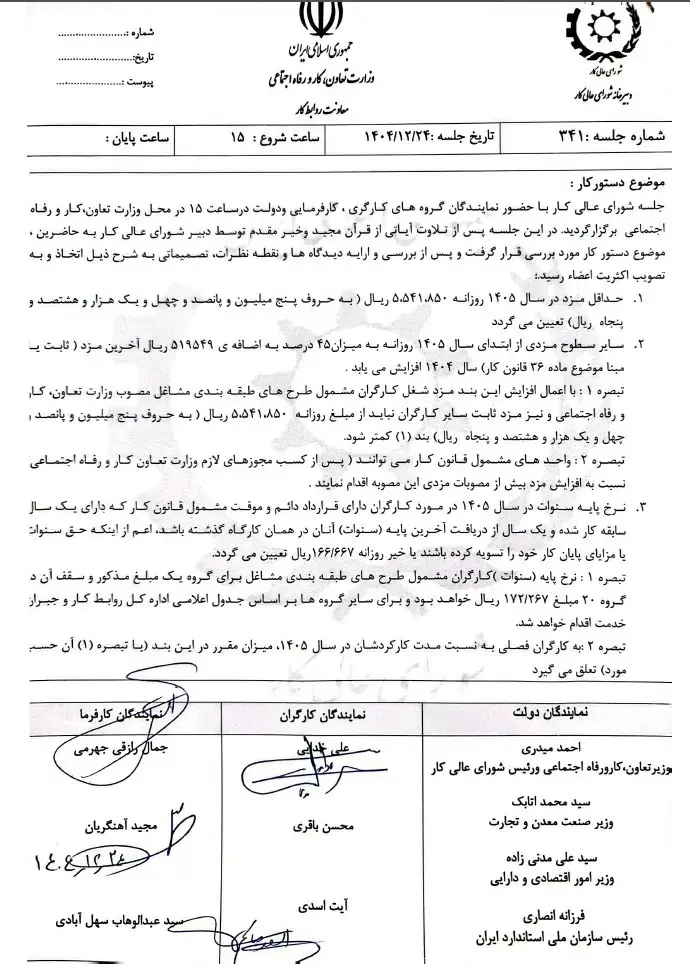 شماره :
تاریخ:
پیوست :
جمهوری اسلامی ایران
وزارت تعاون، کار و رفاه اجتماعی
معاونت روابط کار
شورای عالی کار
دبیرخانه شورای عالی کار
شماره جلسه :۳۴۱
تاریخ جلسه :۱۴۰۴/۱۲/۲۴
ساعت شروع : ۱۵
ساعت پایان :
موضوع دستورکار :
جلسه شورای عالی کار با حضور نمایندگان گروه های کارگری ، کارفرمایی ودولت درساعت ۱۵ در محل وزارت تعاون،کار و رفاه
اجتماعی برگزارگردید. در این جلسه پس از تلاوت آیاتی از قرآن مجید وخیر مقدم توسط دبیر شورای عالی کار به حاضرین ،
موضوع دستور کار مورد بررسی قرار گرفت و پس از بررسی و ارایه دیدگاه ها و نقطه نظرات، تصمیماتی به شرح ذیل اتخاذ و به
تصویب اکثریت اعضاء رسید.:
۱. حداقل مزد در سال ۱۴۰۵ روزانه ۵،۵۴۱،۸۵۰ ریال ( به حروف پنج میلیون و پانصد و چهل و یک هزار و هشتصد و
پنجاه ریال) تعیین می گردد
۲. سایر سطوح مزدی از ابتدای سال ۱۴۰۵ روزانه به میزان۴۵ درصد به اضافه ی ۵۱۹۵۴۹ ریال آخرین مزد ( ثابت یـ
مبنا موضوع ماده ۳۶ قانون کار) سال ۱۴۰۴ افزایش می یابد .
تبصره ۱ : با اعمال افزایش این بند مزد شغل کارگران مشمول طرح های طبقه بندی مشاغل مصوب وزارت تعاون، کار
و رفاه اجتماعی و نیز مزد ثابت سایر کارگران نباید از مبلغ روزانه ۵،۵۴۱،۸۵۰ ریال( به حروف پنج میلیون و پانصد و
چهل و یک هزار و هشتصد و پنجاه ریال) بند (۱) کمتر شود.
تبصره ۲ : واحد های مشمول قانون کار می توانند ( پس از کسب مجوزهای لازم وزارت تعاون کار و رفاه اجتماعی )
نسبت به افزایش مزد بیش از مصوبات مزدی این مصوبه اقدام نمایند .
۳. نرخ پایه سنوات در سال ۱۴۰۵ در مورد کارگران دارای قرارداد دائم و موقت مشمول قانون کار که دارای یک سال
سابقه کار شده و یک سال از دریافت آخرین پایه (سنوات) آنان در همان کارگاه گذشته باشد، اعم از اینکه حق سنوات
یا مزایای پایان کار خود را تسویه کرده باشند یا خیر روزانه ۱۶۶/۶۶۷ریال تعیین می گردد.
تبصره ۱ : نرخ پایه (سنوات )کارگران مشمول طرح های طبقه بندی مشاغل برای گروه یک مبلغ مذکور و سقف آن د
گروه ۲۰ مبلغ ۱۷۲/۲۶۷ ریال خواهد بود و برای سایر گروه ها بر اساس جدول اعلامی اداره کل روابط کار و جبران
خدمت اقدام خواهد شد.
تبصره ۲ :به کارگران فصلی به نسبت مدت کارکردشان در سال ۱۴۰۵، میزان مقرر در این بند (یا تبصره (۱) آن حسب
مورد) تعلق می گیرد
نمایندگان دولت
نمایندگان کارگران
نمایندگان کارفرما
احمد میدری
وزیرتعاون،کارورفاه اجتماعی ورئیس شورای عالی کار
علی خدایی
جمال رازقی جهرمی
سید محمد اتابک
وزیر صنعت معدن و تجارت
محسن باقری
مجید آهنگریان
۱۴۰۴،۱۲،۲۴
سید علی مدنی زاده
وزیر امور اقتصادی و دارایی
آیت اسدی
سید عبدالوهاب سهل آبادی
فرزانه انصاری
رئیس سازمان ملی استاندارد ایران